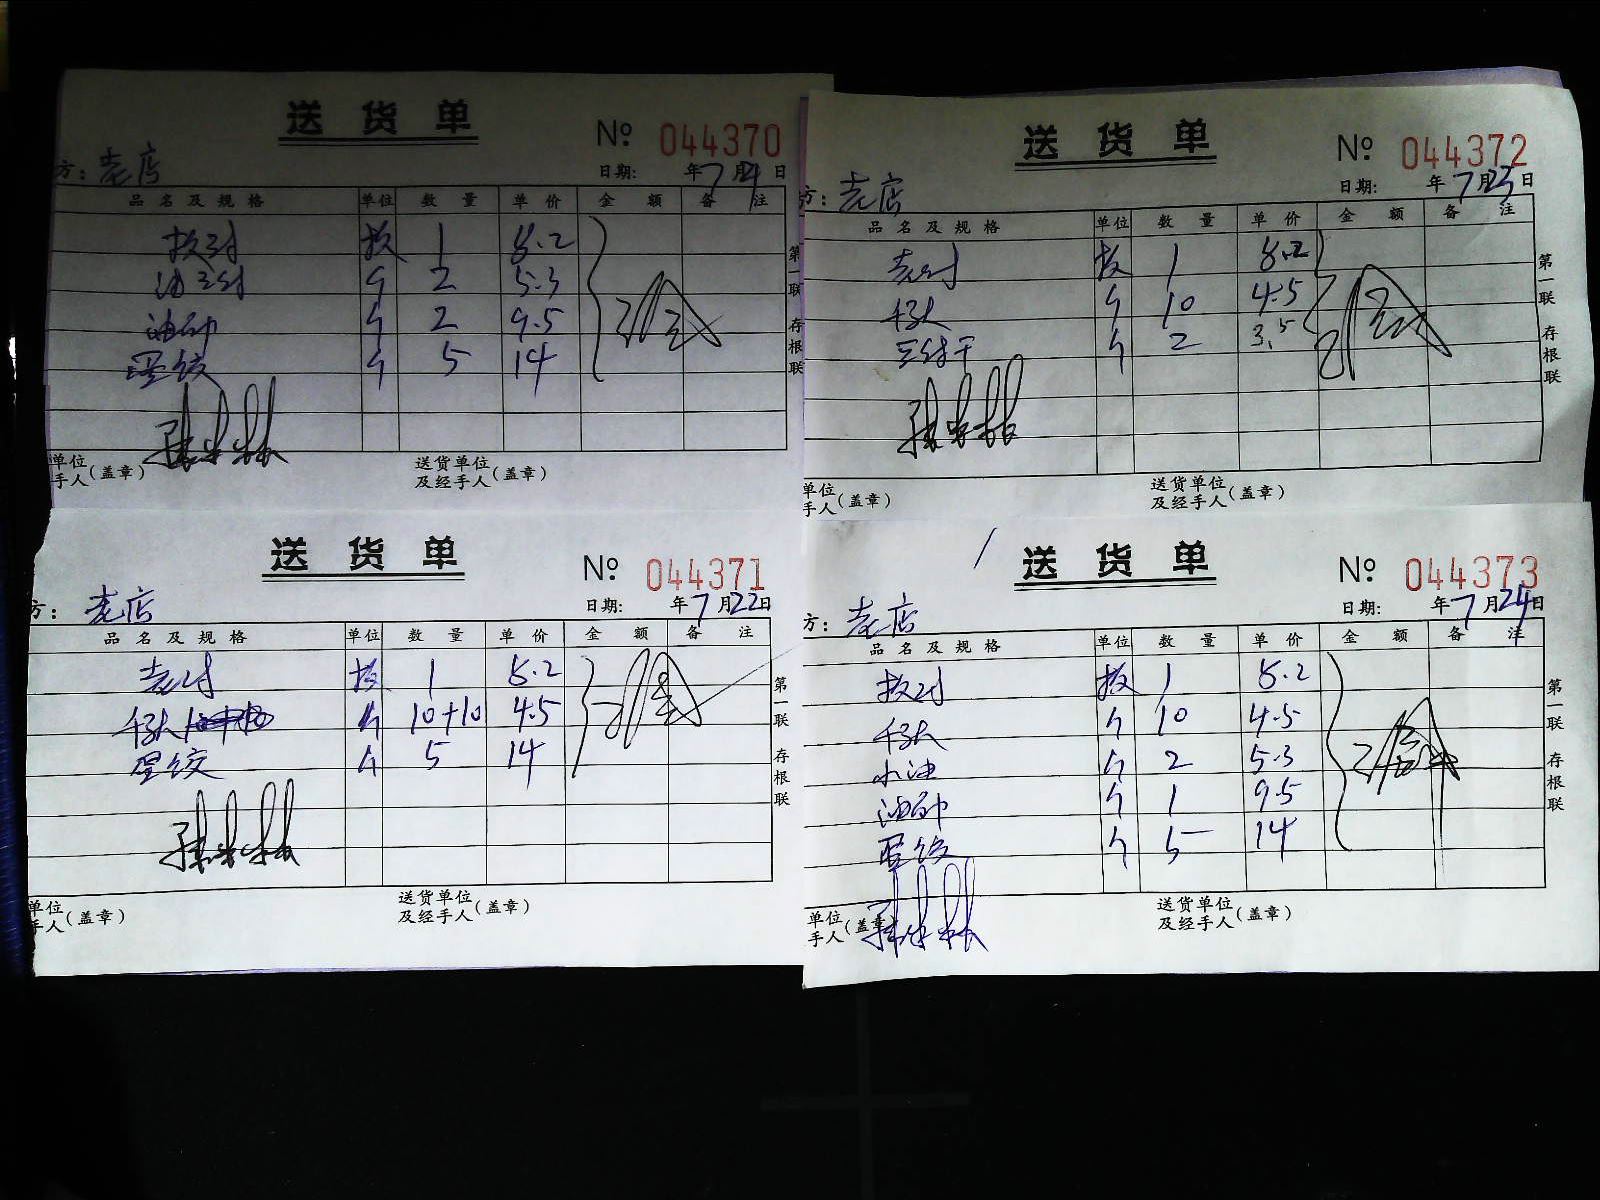 送货单
No. 044370
方：老店
日期： 年 7月 日
品名及规格 单位 数量 单价 金额 备注
板 1 8.2
油 个 2 5.3
油 个 2 9.5
蛋饺 个 5 14
第一联 存根联
单位
手人（盖章）
送货单位
及经手人（盖章）
送货单
No. 044372
方：老店
日期： 年 7月23日
品名及规格 单位 数量 单价 金额 备注
老 板 1 8.2
个 10 4.5
干 个 2 3.5
第一联 存根联
单位
手人（盖章）
送货单位
及经手人（盖章）
送货单
No. 044371
方：老店
日期： 年7月22日
品名及规格 单位 数量 单价 金额 备注
老 板 1 8.2
个 10+10 4.5
蛋饺 个 5 14
第一联 存根联
单位
手人（盖章）
送货单位
及经手人（盖章）
送货单
No. 044373
方：老店
日期： 年7月24日
品名及规格 单位 数量 单价 金额 备注
板 1 8.2
个 10 4.5
小油 个 2 5.3
油 个 1 9.5
蛋饺 个 5 14
第一联 存根联
单位
手人（盖章）
送货单位
及经手人（盖章）